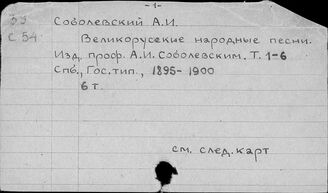 -1-
33 Соболевский А.И.
С 54 Великорусские народные песни.
Изд. проф. А.И. Соболевским. Т. 1-6
Спб., Гос. тип., 1895-1900
6 т.
см. след. карт